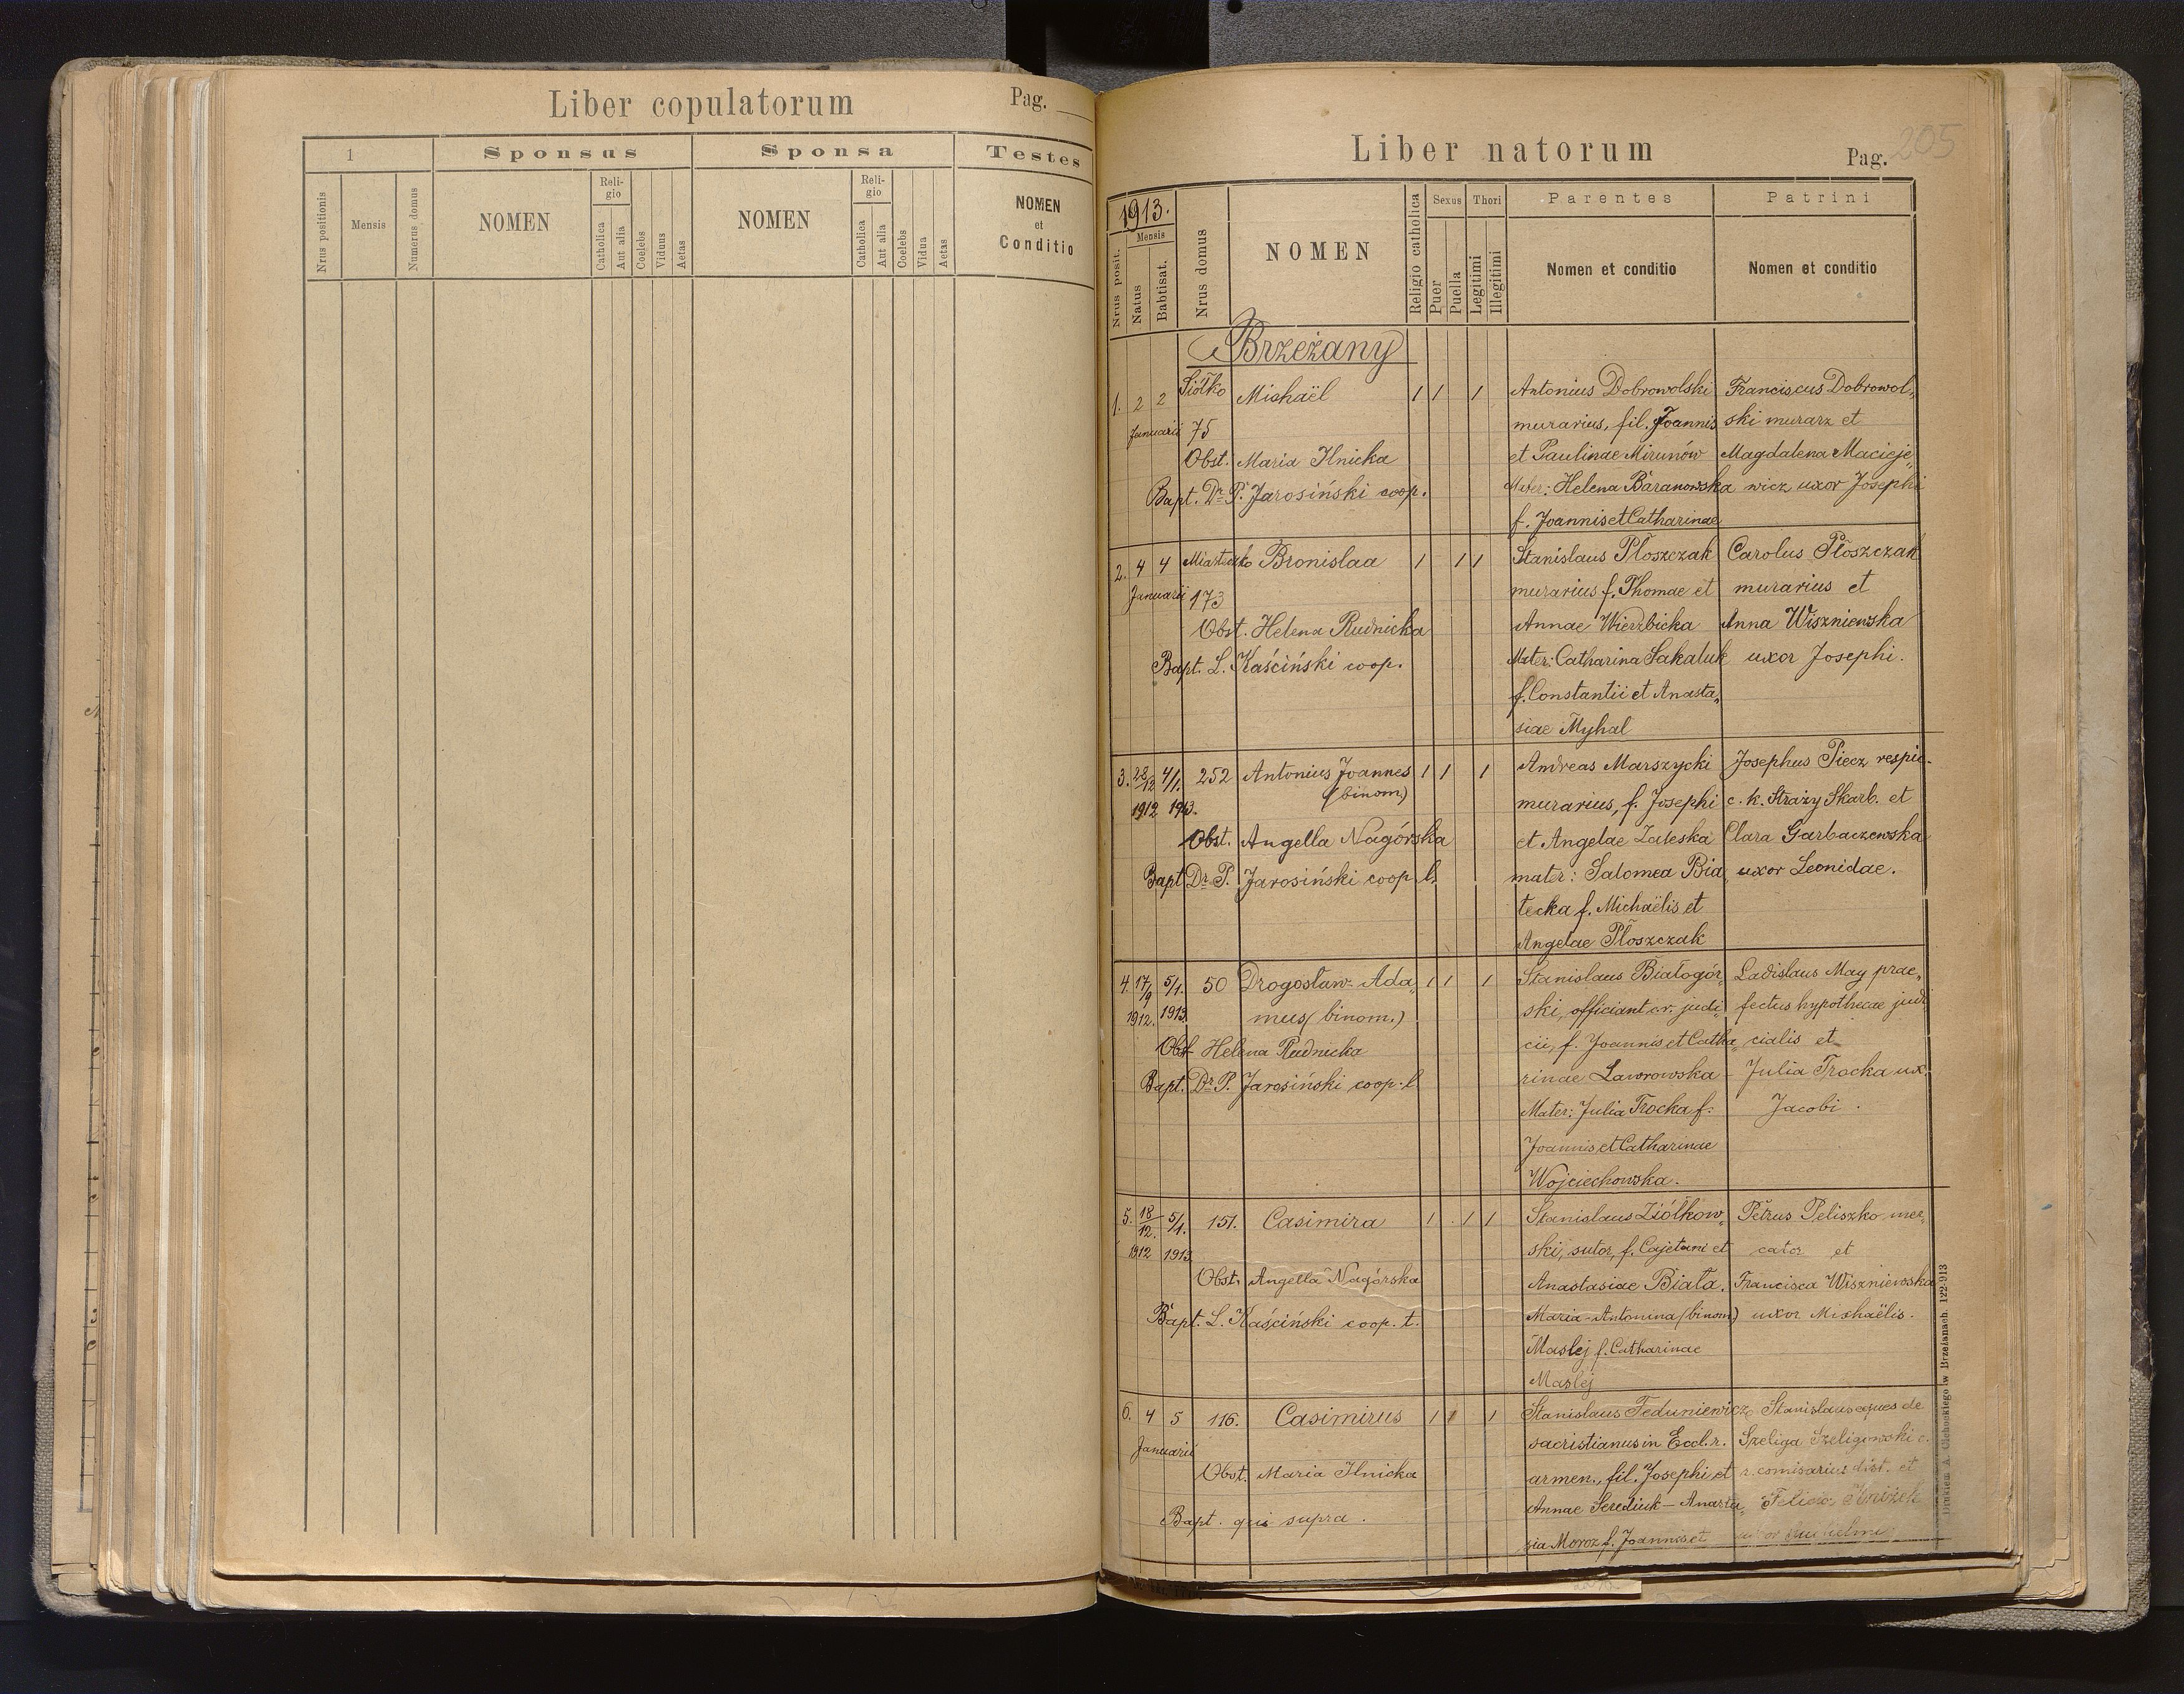 Liber copulatorum
Pag.
1
Sponsus
Sponsa
Testes
Nrus positionis
Mensis
Numerus domus
NOMEN
Religio
Catholica
Aut alia
Coelebs
Viduus
Aetas
NOMEN
Religio
Catholica
Aut alia
Coelebs
Vidua
Aetas
NOMEN
et
Conditio
Liber natorum
Pag. 205
1913.
Nrus posit.
Mensis
Natus
Babtisat.
Nrus domus
NOMEN
Religio catholica
Sexus
Puer
Puella
Thori
Legitimi
Illegitimi
Parentes
Nomen et conditio
Patrini
Nomen et conditio
Brzeżany
1. 2 2 Siółko Michaël 1 1 1 Antonius Dobrowolski Franciscus Dobrowol„
Januarii 75 murarius, fil. Joannis ski murarz et
Obst. Maria Ilnicka et Paulinae Mirunów Magdalena Macieje„
Bapt. Dr P. Jarosiński coop. Mater: Helena Baranowska wicz uxor Josephi
f. Joannis et Catharinae
2. 4 4 Miasteczko Bronislaa 1 1 1 Stanislaus Płoszczak Carolus Płoszczak
Januarii 173 murarius f. Thomae et murarius et
Obst. Helena Rudnicka Annae Wierzbicka Anna Wiszniewska
Bapt. L. Kaściński coop. Mater: Catharina Sakaluk uxor Josephi.
f. Constantii et Anasta„
siae Myhal
3. 28/12 4/1. 252 Antonius Joannes 1 1 1 Andreas Marszycki Josephus Piecz respic.
1912 1913. (binom.) murarius, f. Josephi c. k. Straży Skarb. et
Obst. Angella Nagórska et Angelae Zaleska Clara Garbaczewska
Bapt Dr P. Jarosiński coop. l. mater: Salomea Bia„ uxor Leonidae.
tecka f. Michaëlis et
Angelae Płoszczak
4. 17/9 5/1. 50 Drogosław-Ada„ 1 1 1 Stanislaus Białogór„ Ladislaus May prae„
1912. 1913. mus (binom.) ski, officiant cr. judi„ fectus hypothecae judi
Obst Helena Rudnicka cii, f. Joannis et Catha„ cialis et
Bapt. Dr P. Jarosiński coop. l rinae Lawrowska - Julia Trocka ux.
Mater: Julia Trocka f. Jacobi.
Joannis et Catharinae
Wojciechowska.
5. 18/12. 5/1. 151. Casimira 1 1 1 Stanislaus Ziółkow„ Petrus Peliszko mer„
1912 1913 ski, sutor, f. Cajetani et cator et
Obst. Angella Nagórska Anastasiae Biała. Francisca Wiszniewska
Bapt. L. Kaściński coop. t. Maria-Antonina (binom) uxor Michaëlis.
Maslej f. Catharinae
Maslej
6. 4 5 116. Casimirus 1 1 1 Stanislaus Teduniewicz Stanislaus eques de
Januarii sacristianus in Eccl. r. Szeliga Szeligowski c.
Obst. Maria Ilnicka armen., fil. Josephi et r. comisarius dist. et
Bapt. qui supra. Annae Serediuk - Anasta„
sia Moroz f. Joannis et uxor
Drukiem A. Cichockiego w Brzeżanach. 122-913